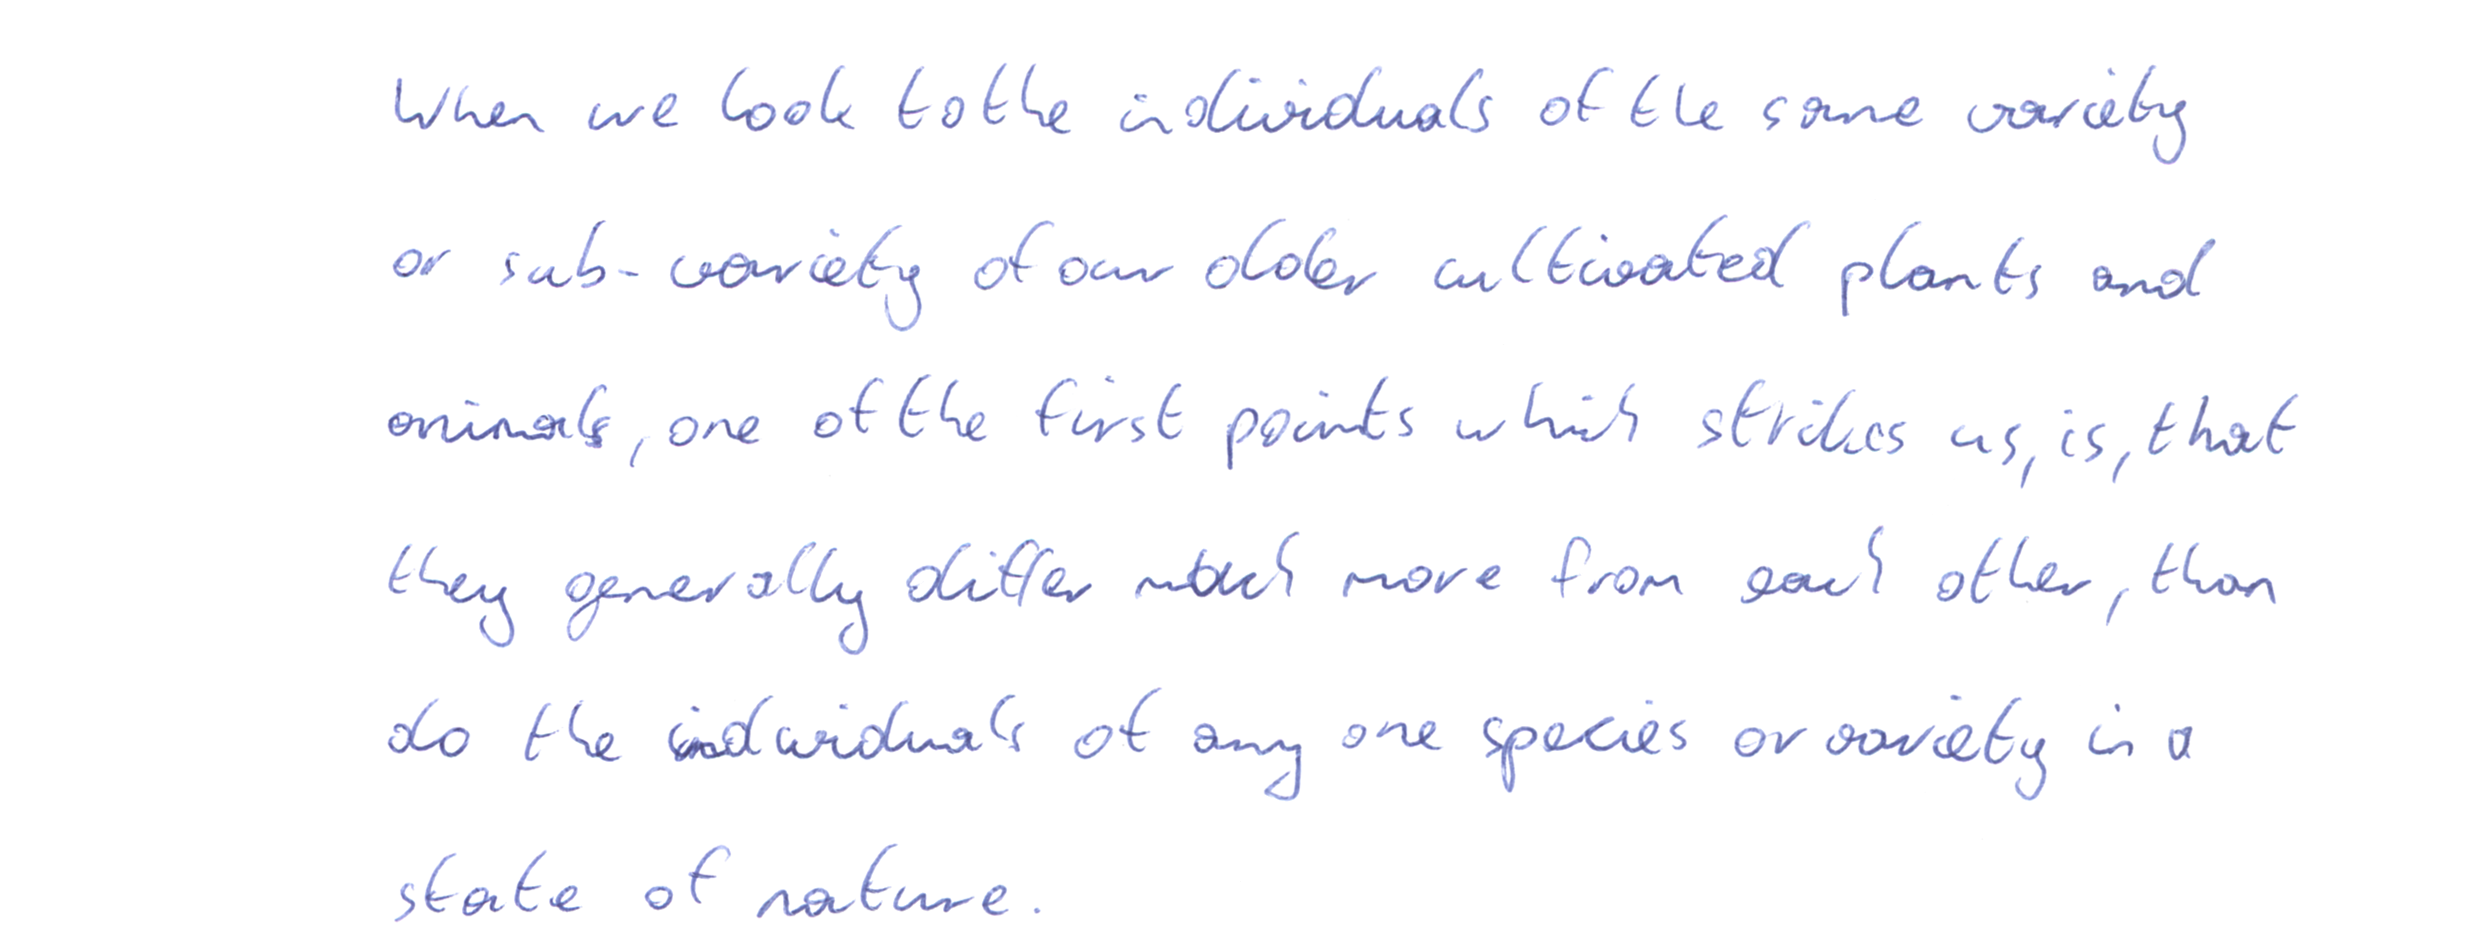 When we look to the individuals of the same variety
or sub-variety of our older cultivated plants and
animals, one of the first points which strikes us, is, that
they generally differ much more from each other, than
do the individuals of any one species or variety in a
state of nature.